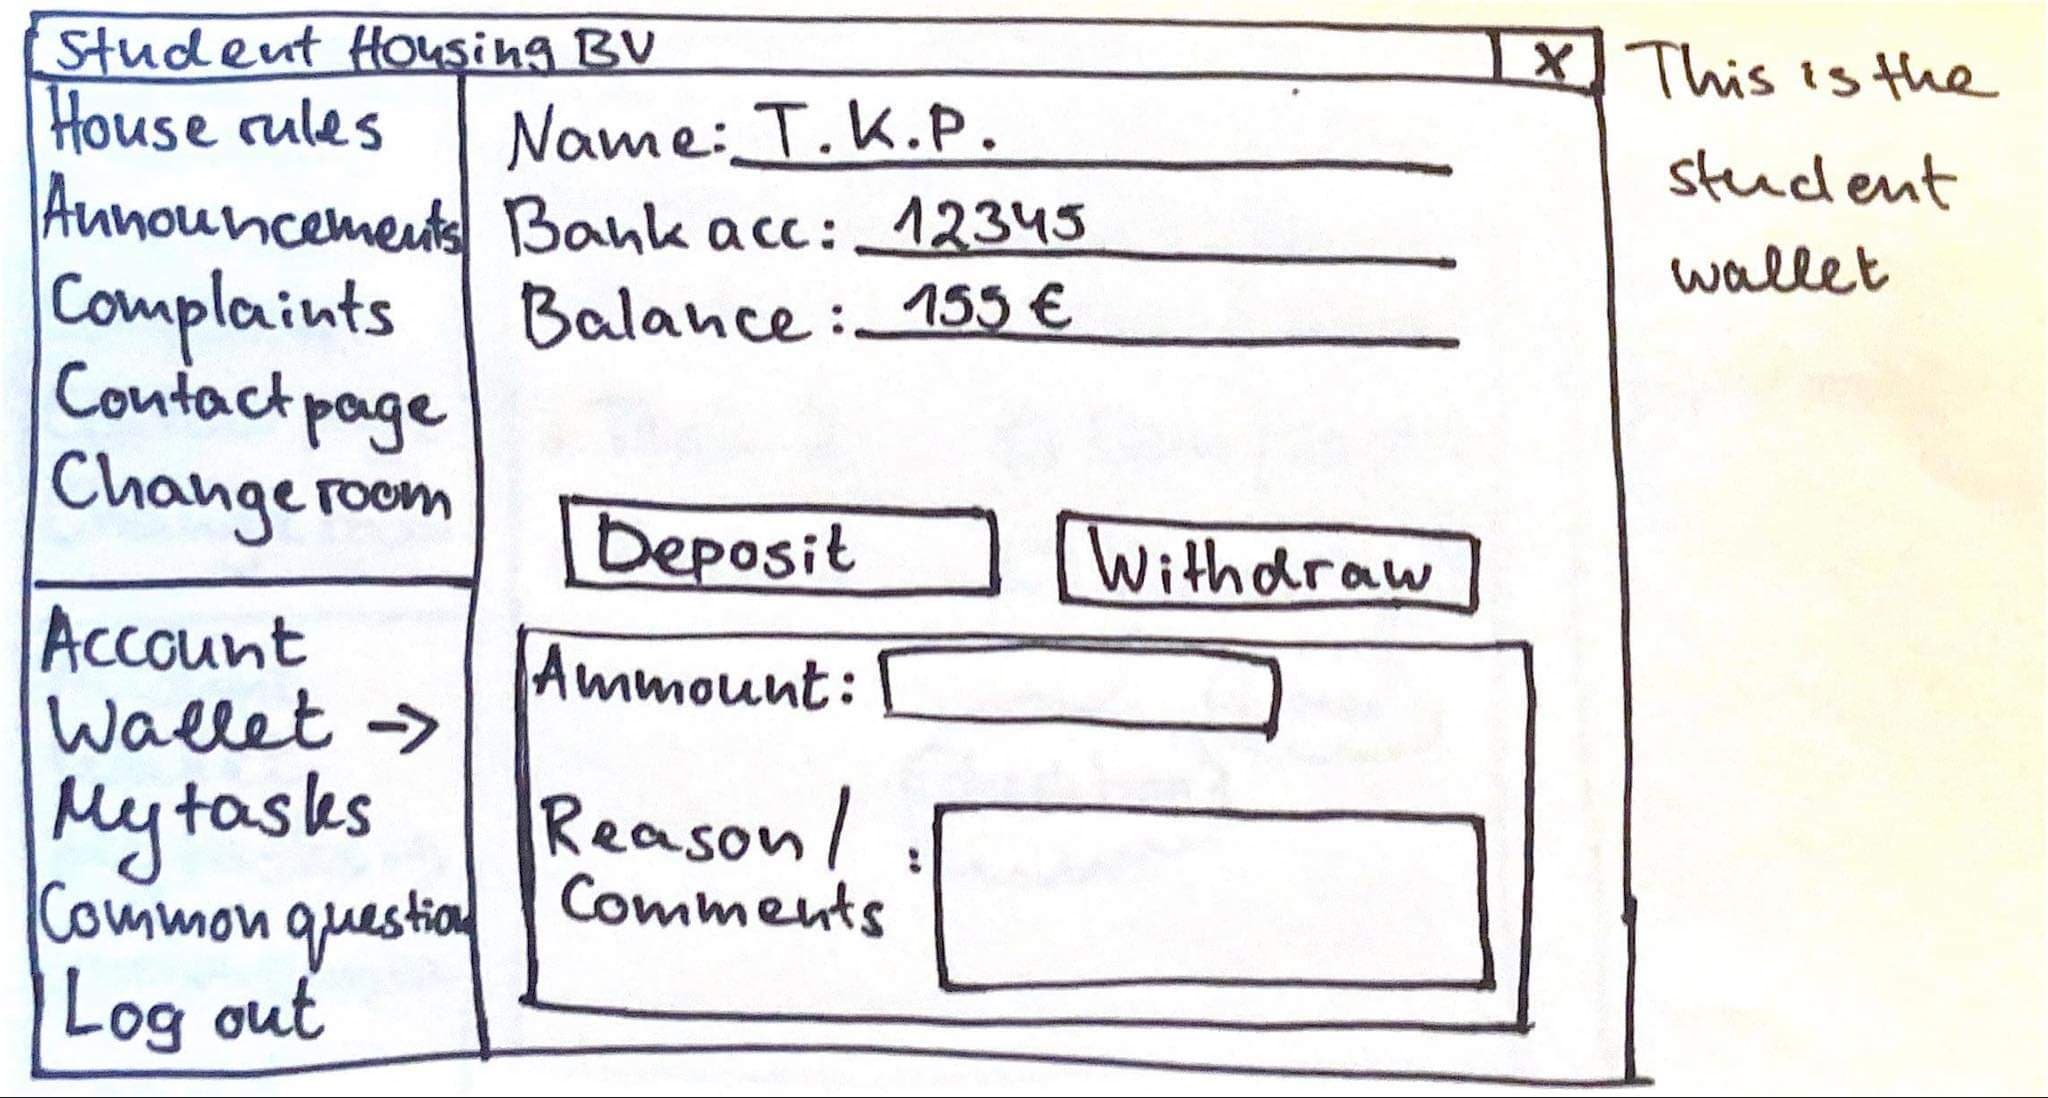 Student Housing BV X
House rules
Announcements
Complaints
Contact page
Change room
Account
Wallet →
My tasks
Common question
Log out
Name: T.K.P.
Bank acc: 12345
Balance: 155 €
Deposit Withdraw
Ammount:
Reason/
Comments :
This is the
student
wallet